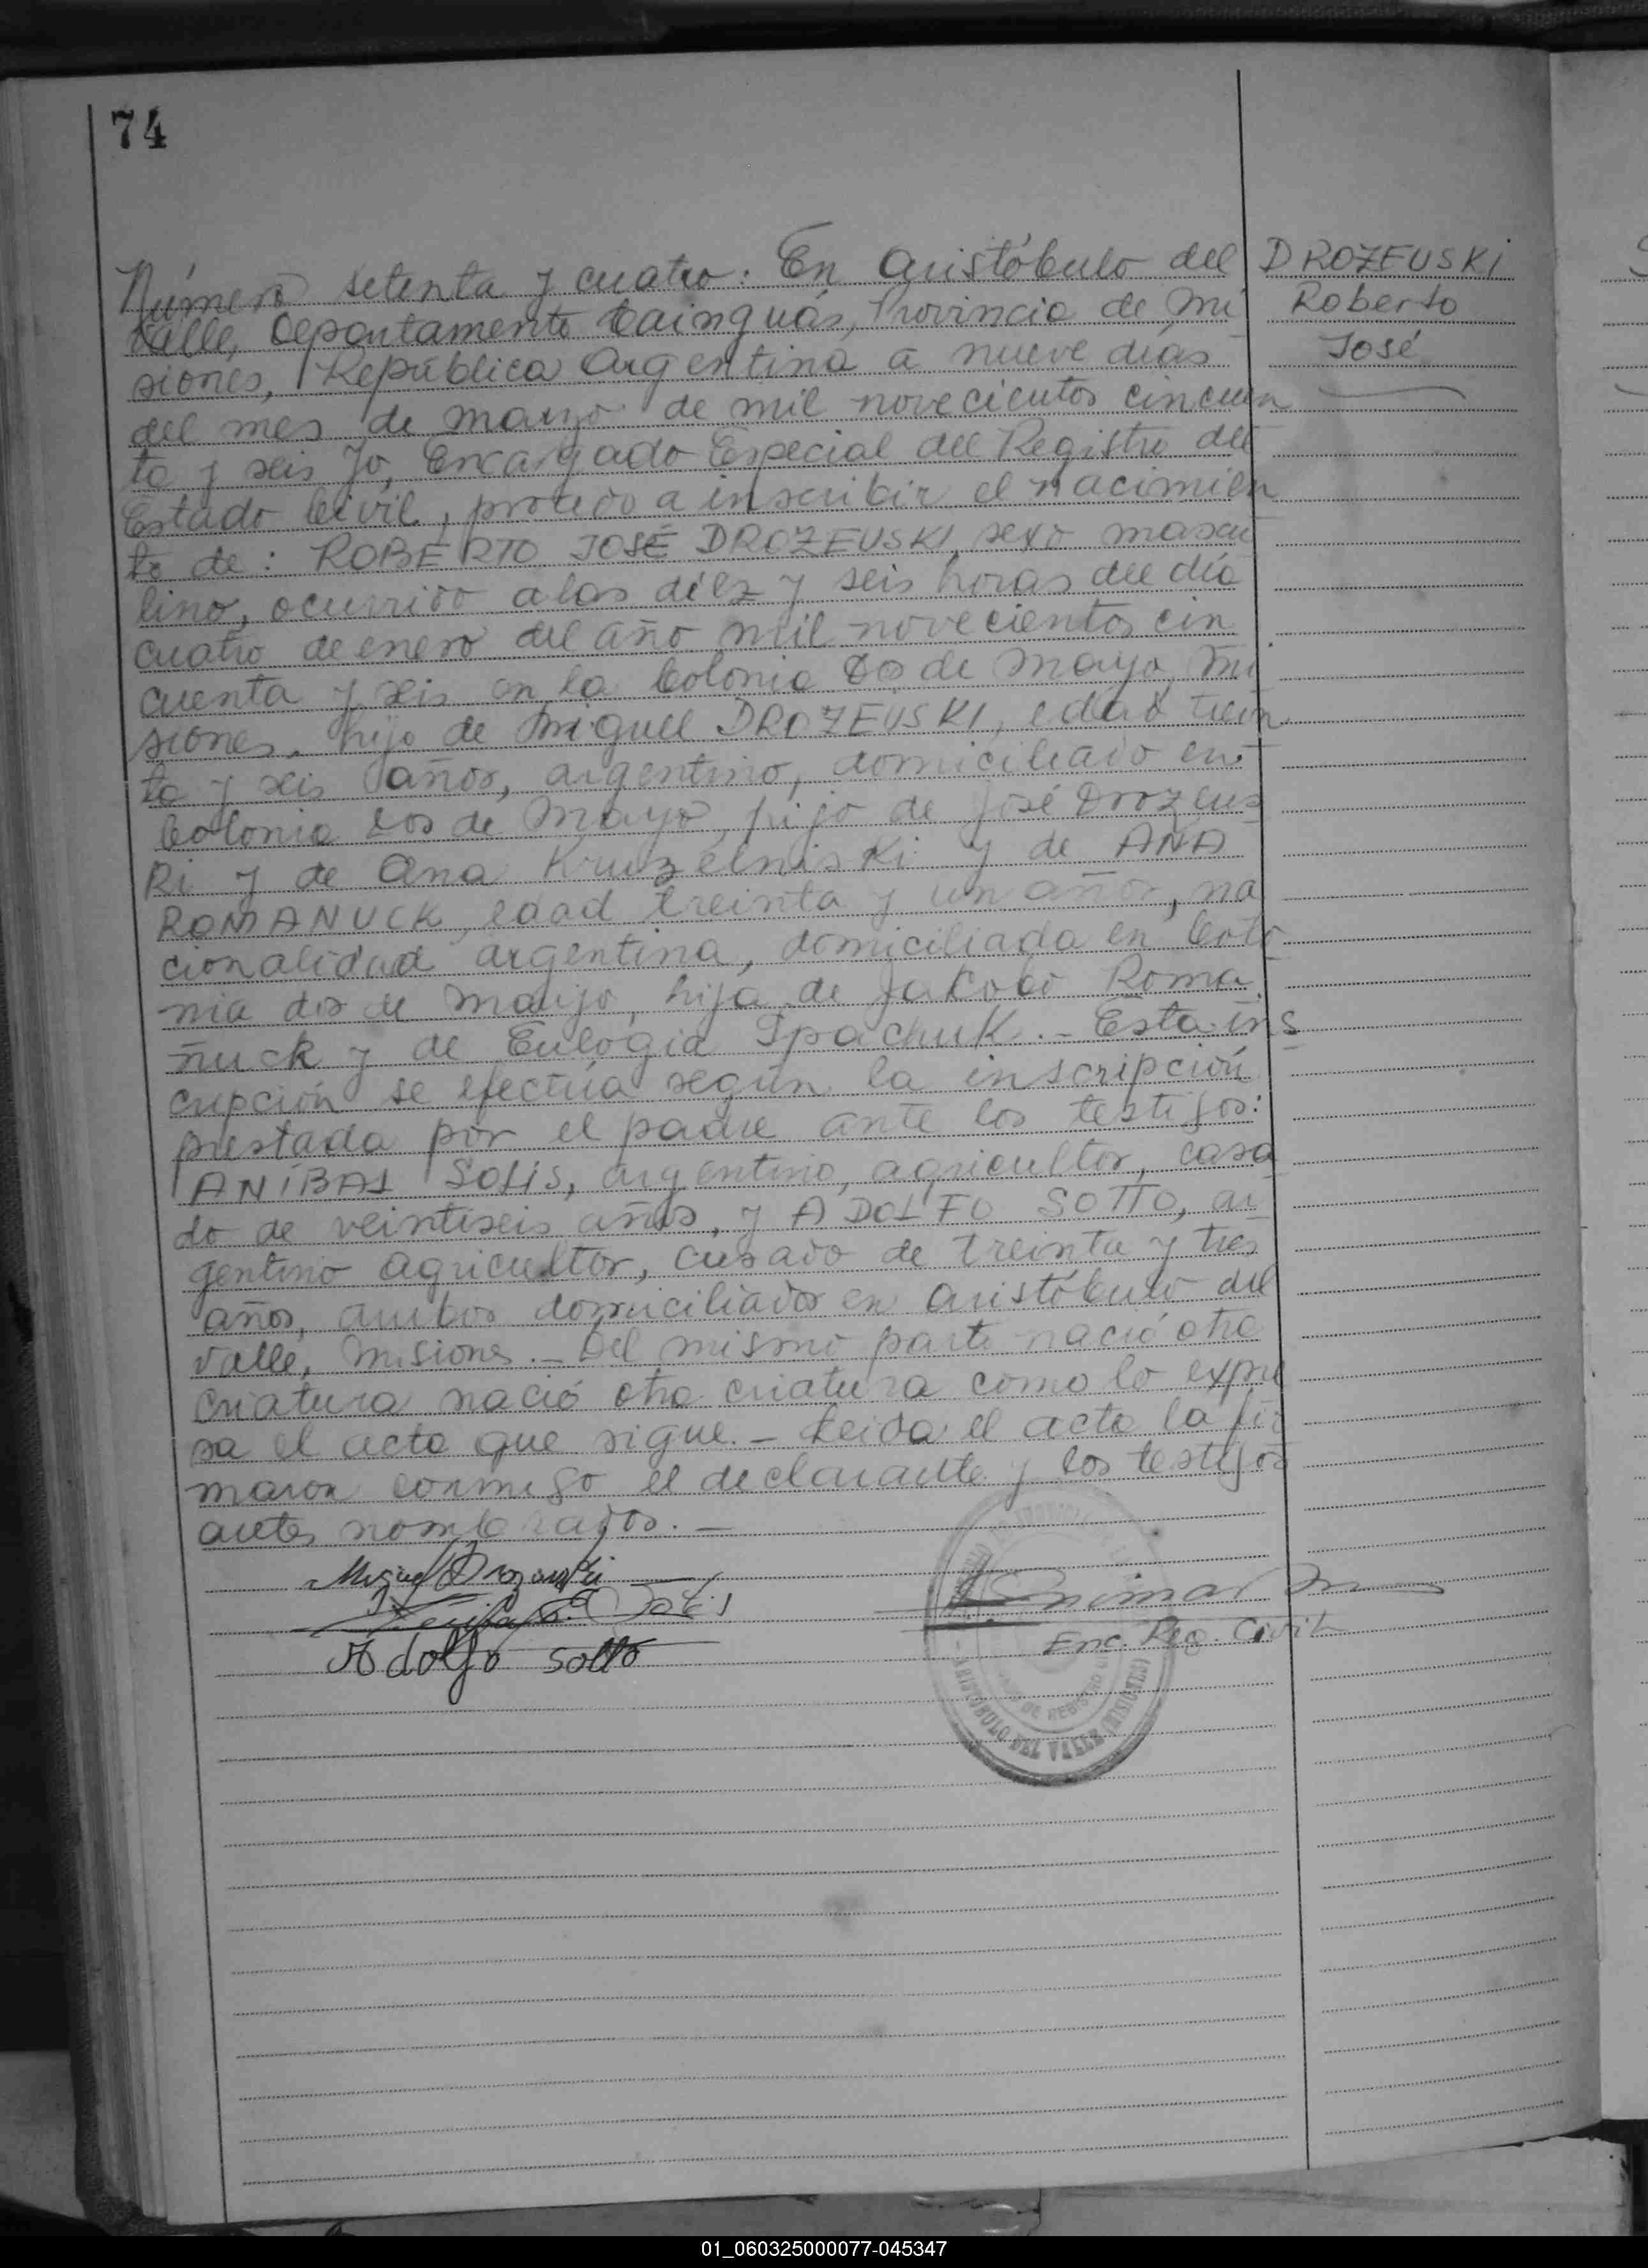 74
Número setenta y cuatro: En Aristóbulo del
Valle, Departamento Cainguás, Provincia de Mi
siones, República Argentina a nueve días
del mes de mayo de mil novecientos cincuen
ta y seis Yo, Encargado Especial del Registro del
Estado Civil, procedo a inscribir el nacimien
to de: ROBERTO JOSÉ DROZEUSKI, sexo mascu
lino, ocurrido a las diez y seis horas del día
cuatro de enero del año mil novecientos cin
cuenta y seis en la Colonia Dos de Mayo, Mi
siones, hijo de Miguel DROZEUSKI, edad trein
ta y seis años, argentino, domiciliado en
Colonia Dos de Mayo, hijo de José Drozeus
ki y de Ana Kruzelniski y de ANA
ROMANUCK, edad treinta y un años, na
cionalidad argentina, domiciliada en Colo
nia dos de Mayo, hija de Jakobo Roma
nuck y de Eulogia Spachuk.- Esta ins
cripción se efectúa según la inscripción
prestada por el padre ante los testigos:
ANÍBAL SOLIS, argentino, agricultor, casa
do de veintiseis años, y ADOLFO SOTTO, ar
gentino agricultor, casado de treinta y tres
años, ambos domiciliados en Aristóbulo del
Valle, Misiones.- Del mismo parto nació otra
criatura nació otra criatura como lo expre
sa el acta que sigue.- Leida el acta la fir
maron conmigo el declarante y los testigos
antes nombrados.-
DROZEUSKI
Roberto
José
Miguel Drozeuski
Adolfo Sotto
Enc. Reg. Civil
ARISTOBULO DEL VALLE (MISIONES)
01_060325000077-045347